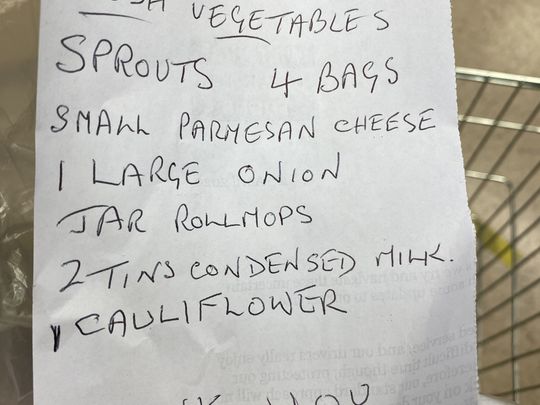 VEGETABLES
SPROUTS 4 BAGS
SMALL PARMESAN CHEESE
1 LARGE ONION
JAR ROLLMOPS
2 TINS CONDENSED MILK.
1 CAULIFLOWER
YOU